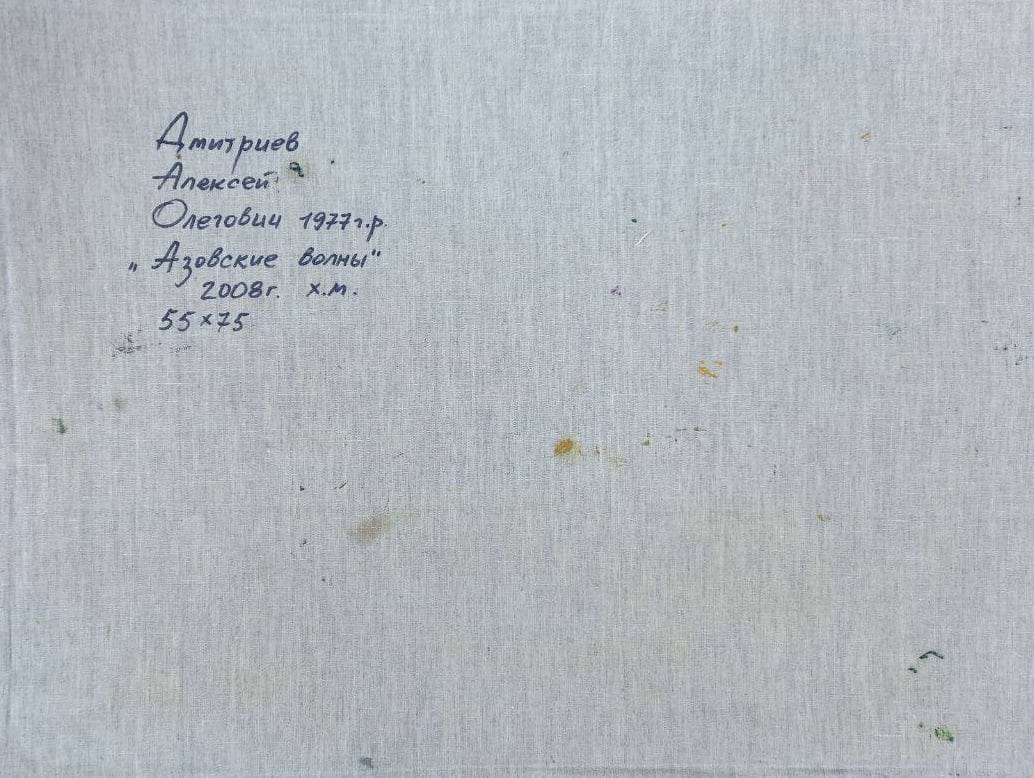 Дмитриев
Алексей
Олегович 1977г.р.
„Азовские волны"
2008г. х.м.
55×75